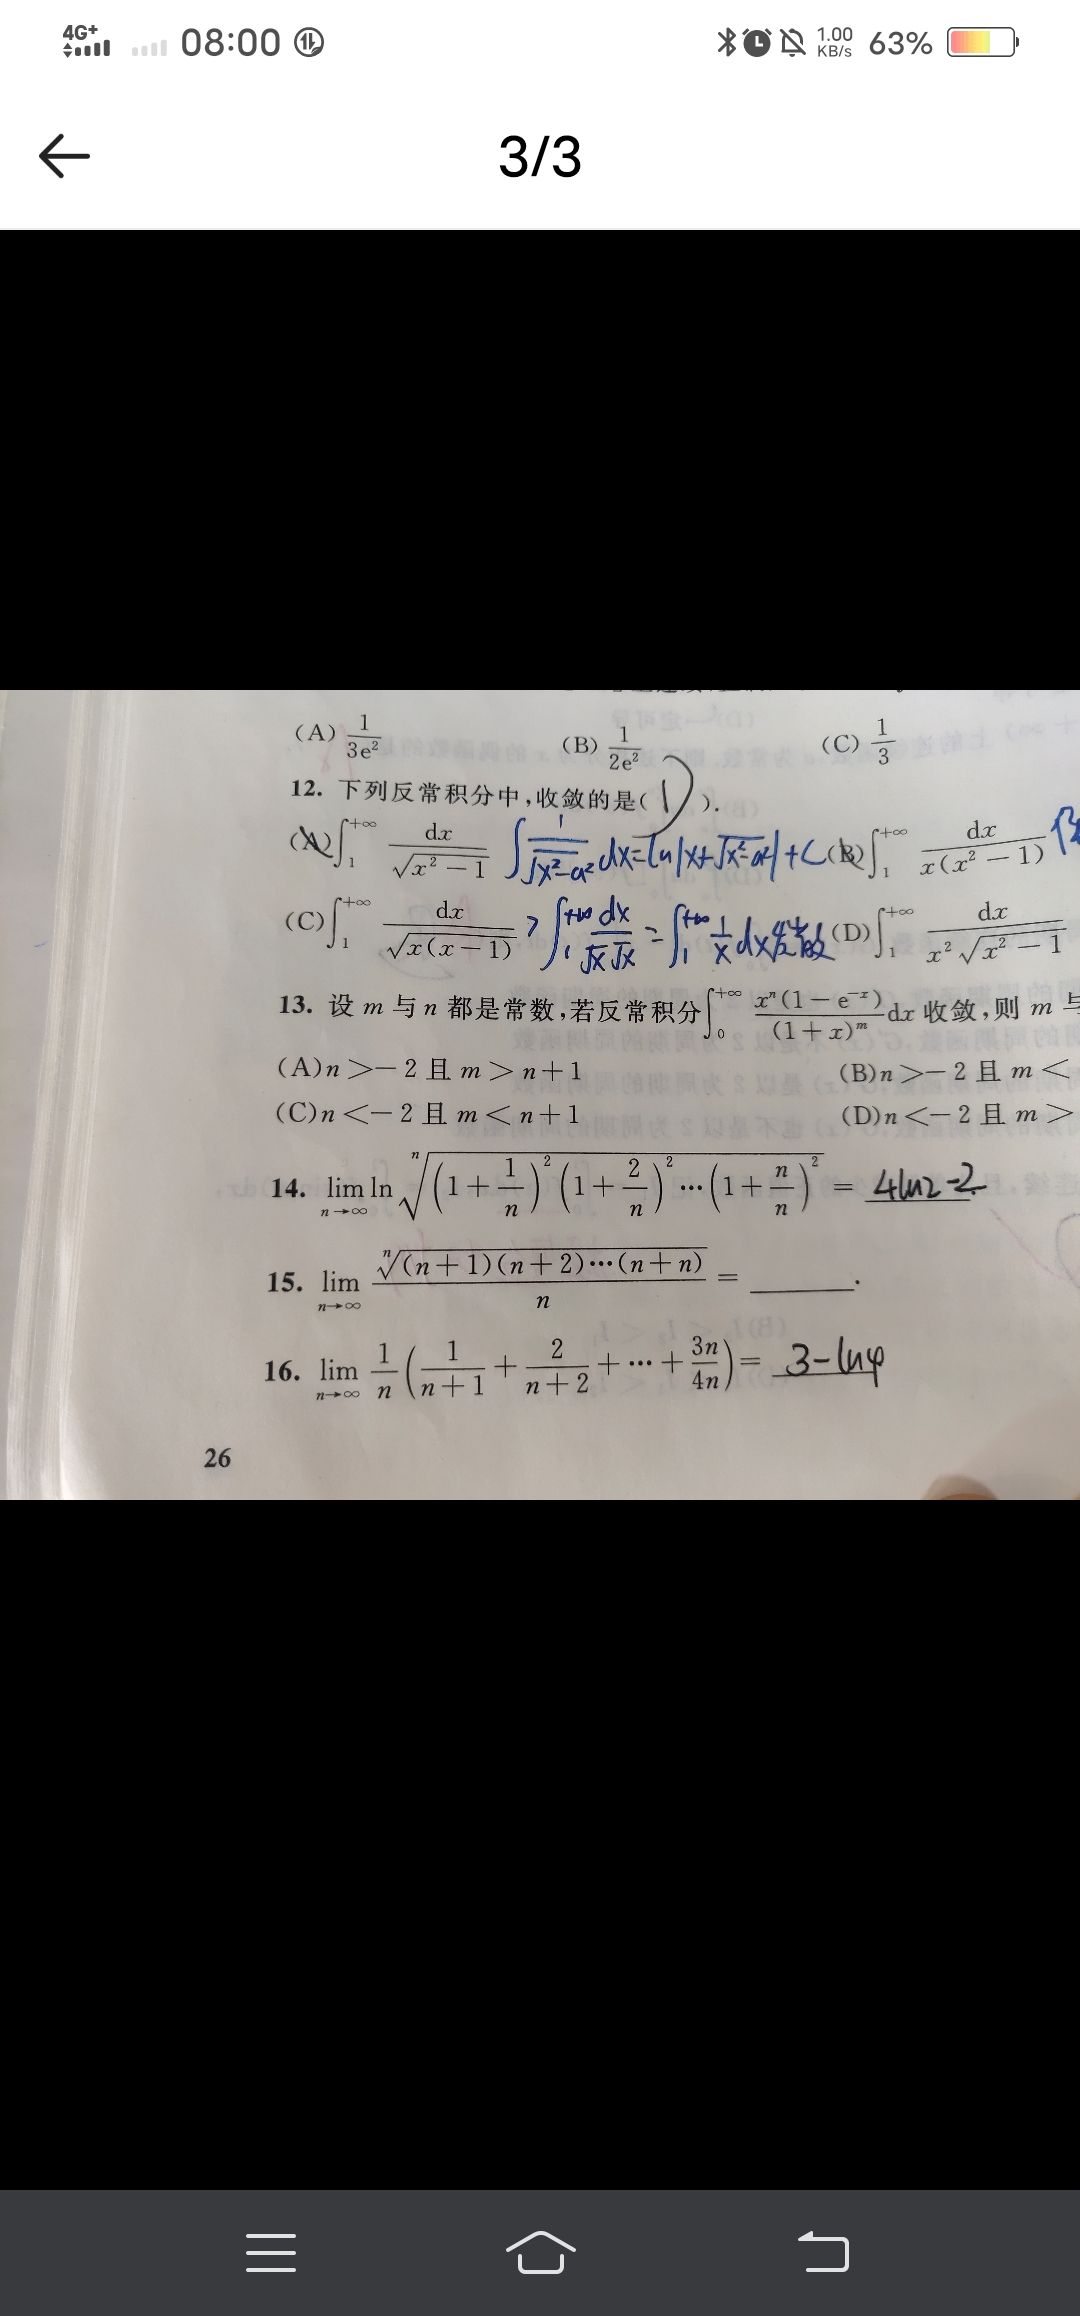 4G+ 08:00 1.00 KB/s 63%
3/3
(A) 1/(3e²) (B) 1/(2e²) (C) 1/3
12. 下列反常积分中,收敛的是( D ).
(A) ∫₁^{+∞} dx/√(x²−1) ∫ 1/√(x²−a²) dx=ln|x+√(x²−a²)|+C (B) ∫₁^{+∞} dx/(x(x²−1))
(C) ∫₁^{+∞} dx/√(x(x−1)) > ∫₁^{+∞} dx/(√x√x) = ∫₁^{+∞} 1/x dx发散 (D) ∫₁^{+∞} dx/(x²√(x²−1))
13. 设 m 与 n 都是常数,若反常积分 ∫₀^{+∞} xⁿ(1−e^{−x})/(1+x)^m dx 收敛,则 m 与
(A) n>−2 且 m>n+1 (B) n>−2 且 m<
(C) n<−2 且 m<n+1 (D) n<−2 且 m>
14. lim_{n→∞} ln ⁿ√((1+1/n)²(1+2/n)²⋯(1+n/n)²) = 4ln2-2
15. lim_{n→∞} ⁿ√((n+1)(n+2)⋯(n+n))/n = ______.
16. lim_{n→∞} 1/n (1/(n+1)+2/(n+2)+⋯+3n/4n) = 3-ln4
26